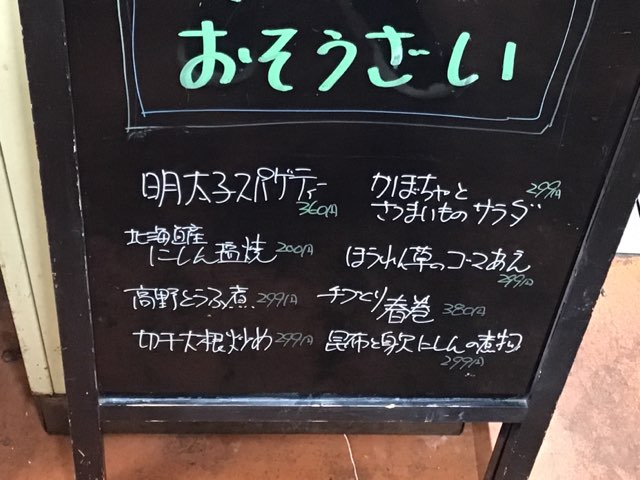 おそうざい
明太子スパゲティー
360円
北海道産
にしん塩焼 200円
高野とうふ煮 299円
切干大根炒め 299円
かぼちゃと
さつまいものサラダ 299円
ほうれん草のゴマあえ
299円
手づくり春巻 380円
昆布と身欠にしんの煮物
299円